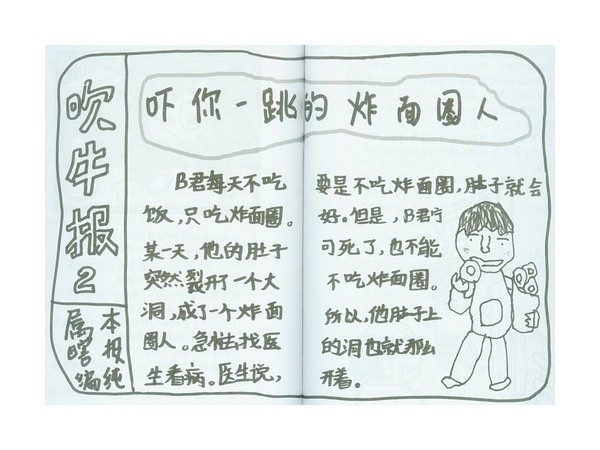 吹牛报2
本报纯
属瞎编
吓你一跳的炸面圈人
B君每天不吃
饭，只吃炸面圈。
某一天，他的肚子
突然裂开了一个大
洞，成了一个炸面
圈人。急忙找医
生看病。医生说，
要是不吃炸面圈，肚子就会
好。但是，B君宁
可死了，也不能
不吃炸面圈。
所以，他肚子上
的洞也就那么
开着。